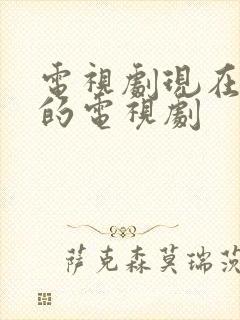 電視劇現在
的電視劇
萨克森莫瑞茨